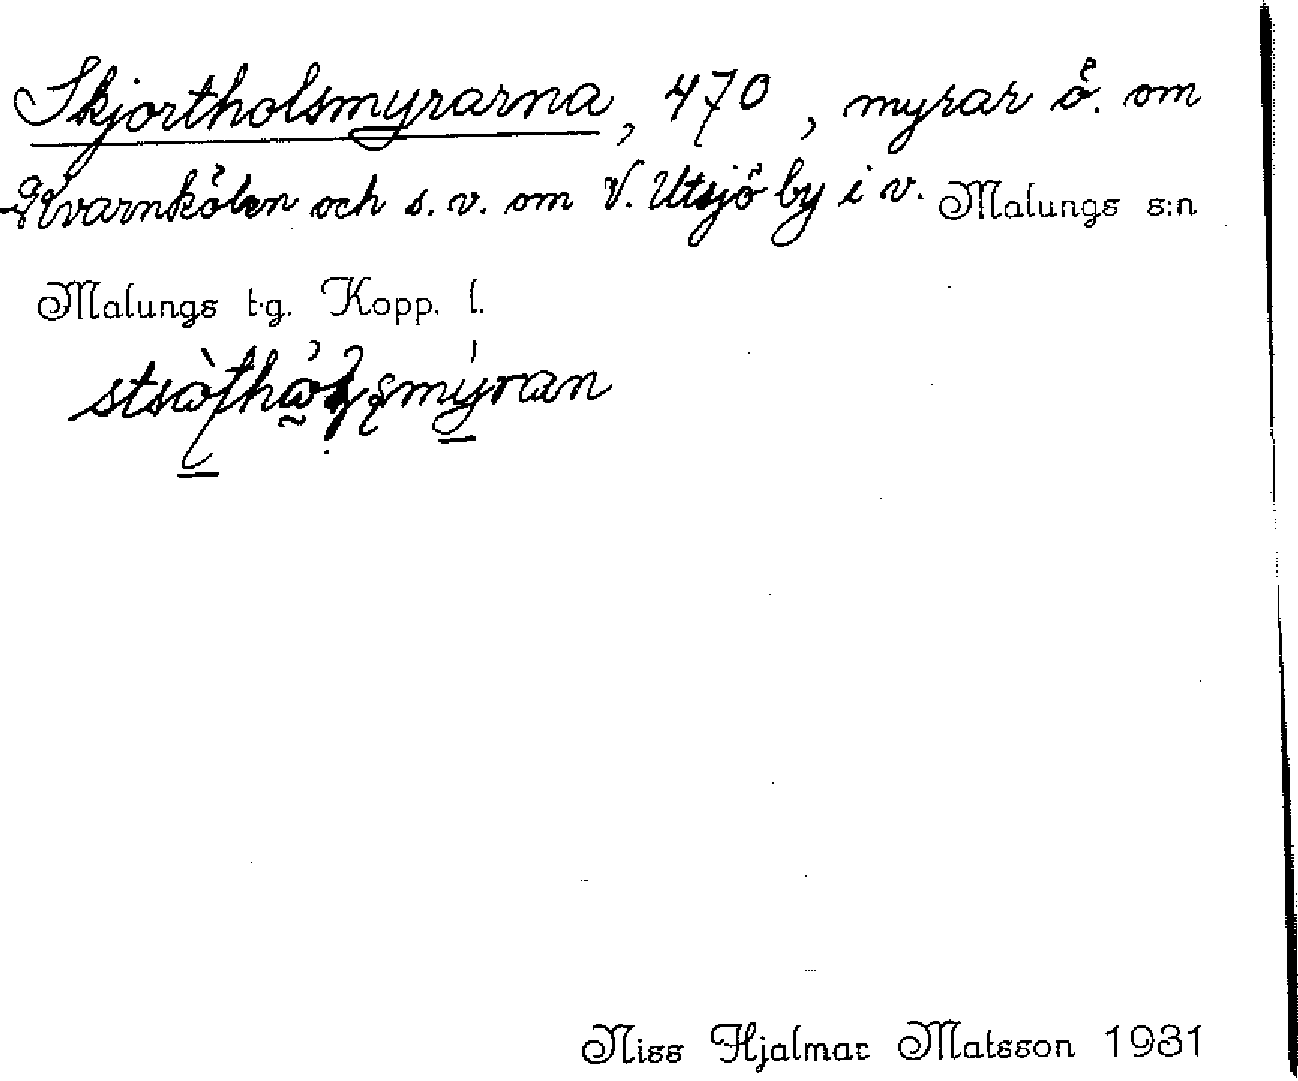 Skjortholsmyrarna, 470, myrar ö. om
Kvarnkölen och s. v. om V. Utsjö by i v. Malungs s:n
Malungs t.g. Kopp. l.
Niss Hjalmar Matsson 1931